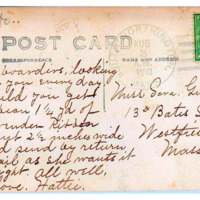 POST CARD
Correspondence
NAME AND ADDRESS
AUG
wanders, looking
you everyday
ould you get
ean 1 1/4 yd of
vender Ribbon
out 2 1/2 inches wide
nd send by return
ail as she wants it
ight. all well,
ove. Hattie.
Miss Sara.
13 Bates S
Westfiel
Mass